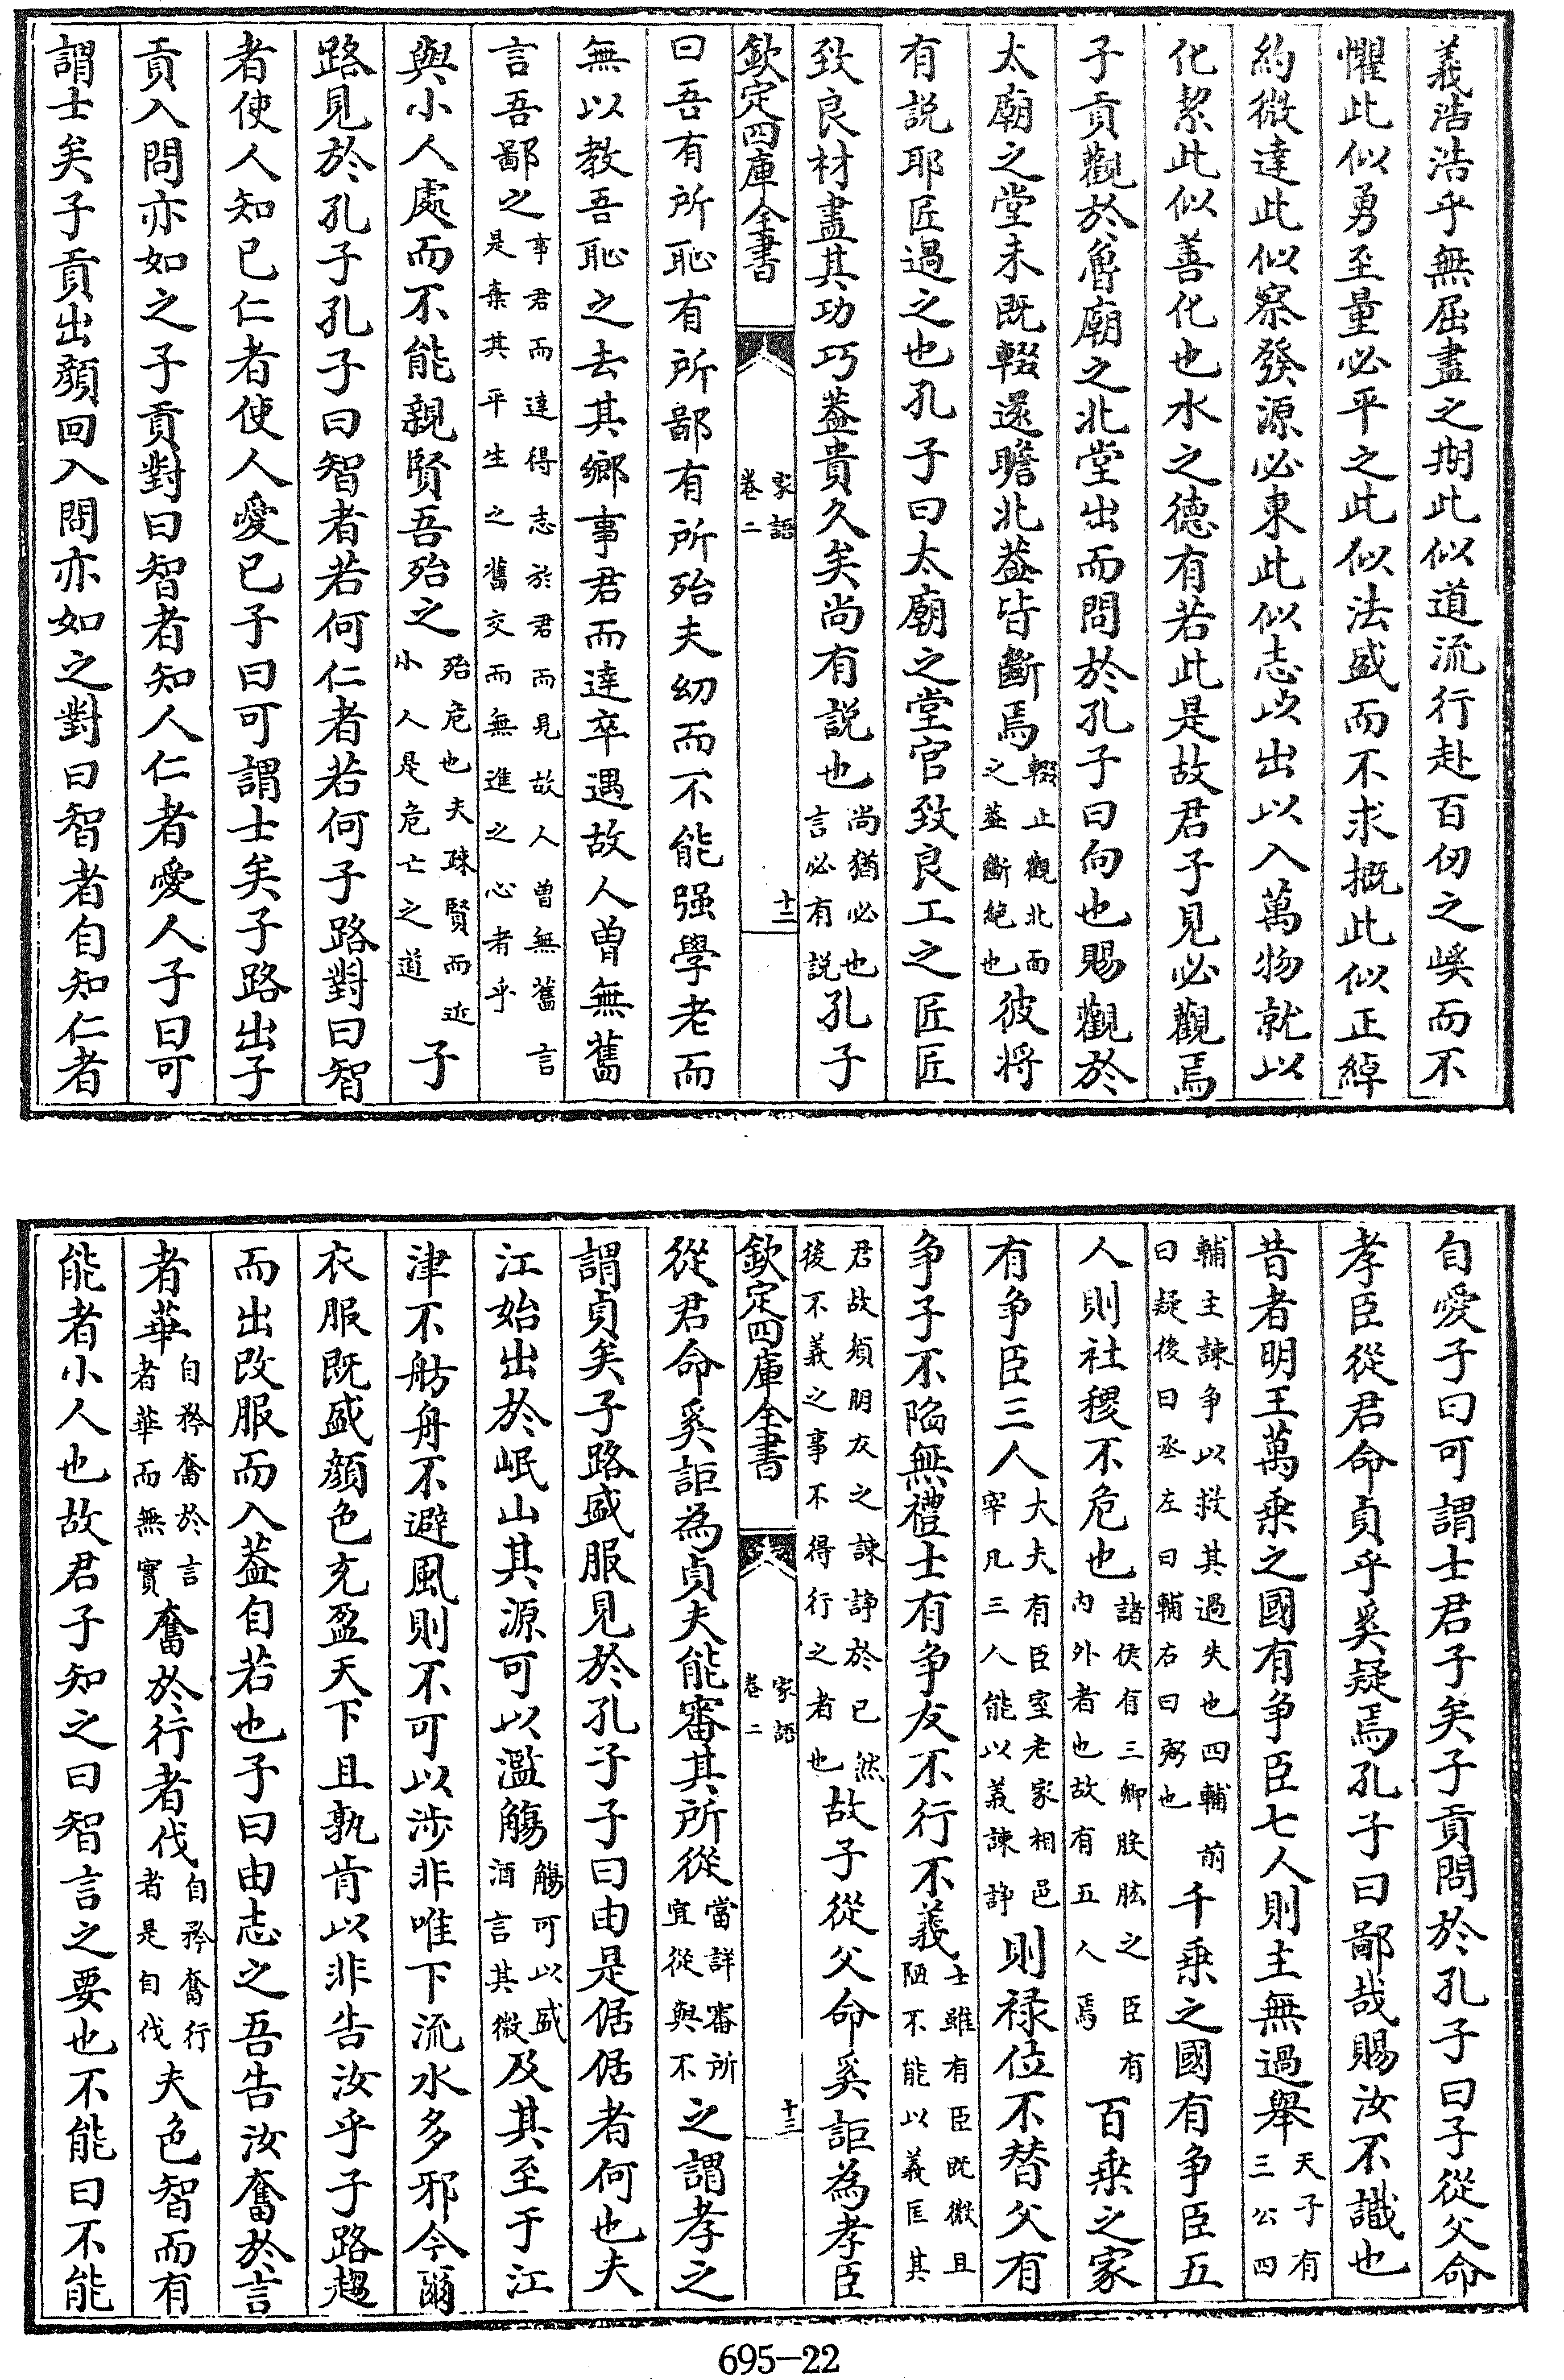 義浩浩乎無屈盡之期此似道流行赴百仞之嵠而不
懼此似勇至量必平之此似法盛而不求概此似正綽
約微達此似察發源必東此似志以出以入萬物就以
化絜此似善化也水之德有若此是故君子見必觀焉
子貢觀於魯廟之北堂出而問於孔子曰向也賜觀於
太廟之堂未既輟還瞻北葢皆斷焉輟止觀北面之葢斷絶也彼将
有説耶匠過之也孔子曰太廟之堂官致良工之匠匠
致良材盡其功巧葢貴久矣尚有説也尚猶必也言必有説孔子
欽定四庫全書 家語卷二 十二
曰吾有所恥有所鄙有所殆夫幼而不能强學老而
無以教吾恥之去其鄉事君而達卒遇故人曽無舊
言吾鄙之事君而達得志於君而見故人曽無舊言是棄其平生之舊交而無進之心者乎
與小人處而不能親賢吾殆之殆危也夫疎賢而近小人是危亡之道子
路見於孔子孔子曰智者若何仁者若何子路對曰智
者使人知已仁者使人愛已子曰可謂士矣子路出子
貢入問亦如之子貢對曰智者知人仁者愛人子曰可
謂士矣子貢出顔回入問亦如之對曰智者自知仁者
自愛子曰可謂士君子矣子貢問於孔子曰子從父命
孝臣從君命貞乎奚疑焉孔子曰鄙哉賜汝不識也
昔者明王萬乗之國有争臣七人則主無過舉天子有三公四
輔主諫争以救其過失也四輔前曰疑後曰丞左曰輔右曰弼也千乗之國有争臣五
人則社稷不危也諸侯有三卿股肱之臣有内外者也故有五人焉百乗之家
有争臣三人大夫有臣室老家相邑宰凡三人能以義諫諍則禄位不替父有
争子不陷無禮士有争友不行不義士雖有臣既微且陋不能以義匡其
君故須朋友之諫諍於已然後不義之事不得行之者也故子從父命奚詎為孝臣
欽定四庫全書 家語卷二 十三
從君命奚詎為貞夫能審其所從當詳審所宜從與不之謂孝之
謂貞矣子路盛服見於孔子子曰由是倨倨者何也夫
江始出於岷山其源可以濫觴觴可以盛酒言其微及其至于江
津不舫舟不避風則不可以涉非唯下流水多邪今爾
衣服既盛顔色充盈天下且孰肯以非告汝乎子路趨
而出改服而入葢自若也子曰由志之吾告汝奮於言
者華自矜奮於言者華而無實奮於行者伐自矜奮行者是自伐夫色智而有
能者小人也故君子知之曰智言之要也不能曰不能
695-22